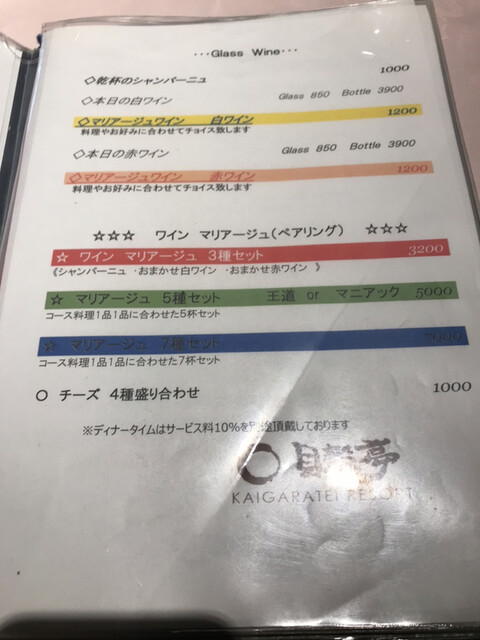 ···Glass Wine···
◇乾杯のシャンパーニュ 1000
◇本日の白ワイン Glass 850 Bottle 3900
◇マリアージュワイン 白ワイン 1200
料理やお好みに合わせてチョイス致します
◇本日の赤ワイン Glass 850 Bottle 3900
◇マリアージュワイン 赤ワイン 1200
料理やお好みに合わせてチョイス致します
☆☆☆ ワイン マリアージュ(ペアリング) ☆☆☆
☆ ワイン マリアージュ 3種セット 3200
《シャンパーニュ ・おまかせ白ワイン ・おまかせ赤ワイン 》
☆ マリアージュ 5種セット 王道 or マニアック 5000
コース料理1品1品に合わせた5杯セット
☆ マリアージュ 7種セット 7000
コース料理1品1品に合わせた7杯セット
○ チーズ 4種盛り合わせ 1000
※ディナータイムはサービス料10%を別途頂戴しております
貝殻亭
KAIGARATEI RESORT